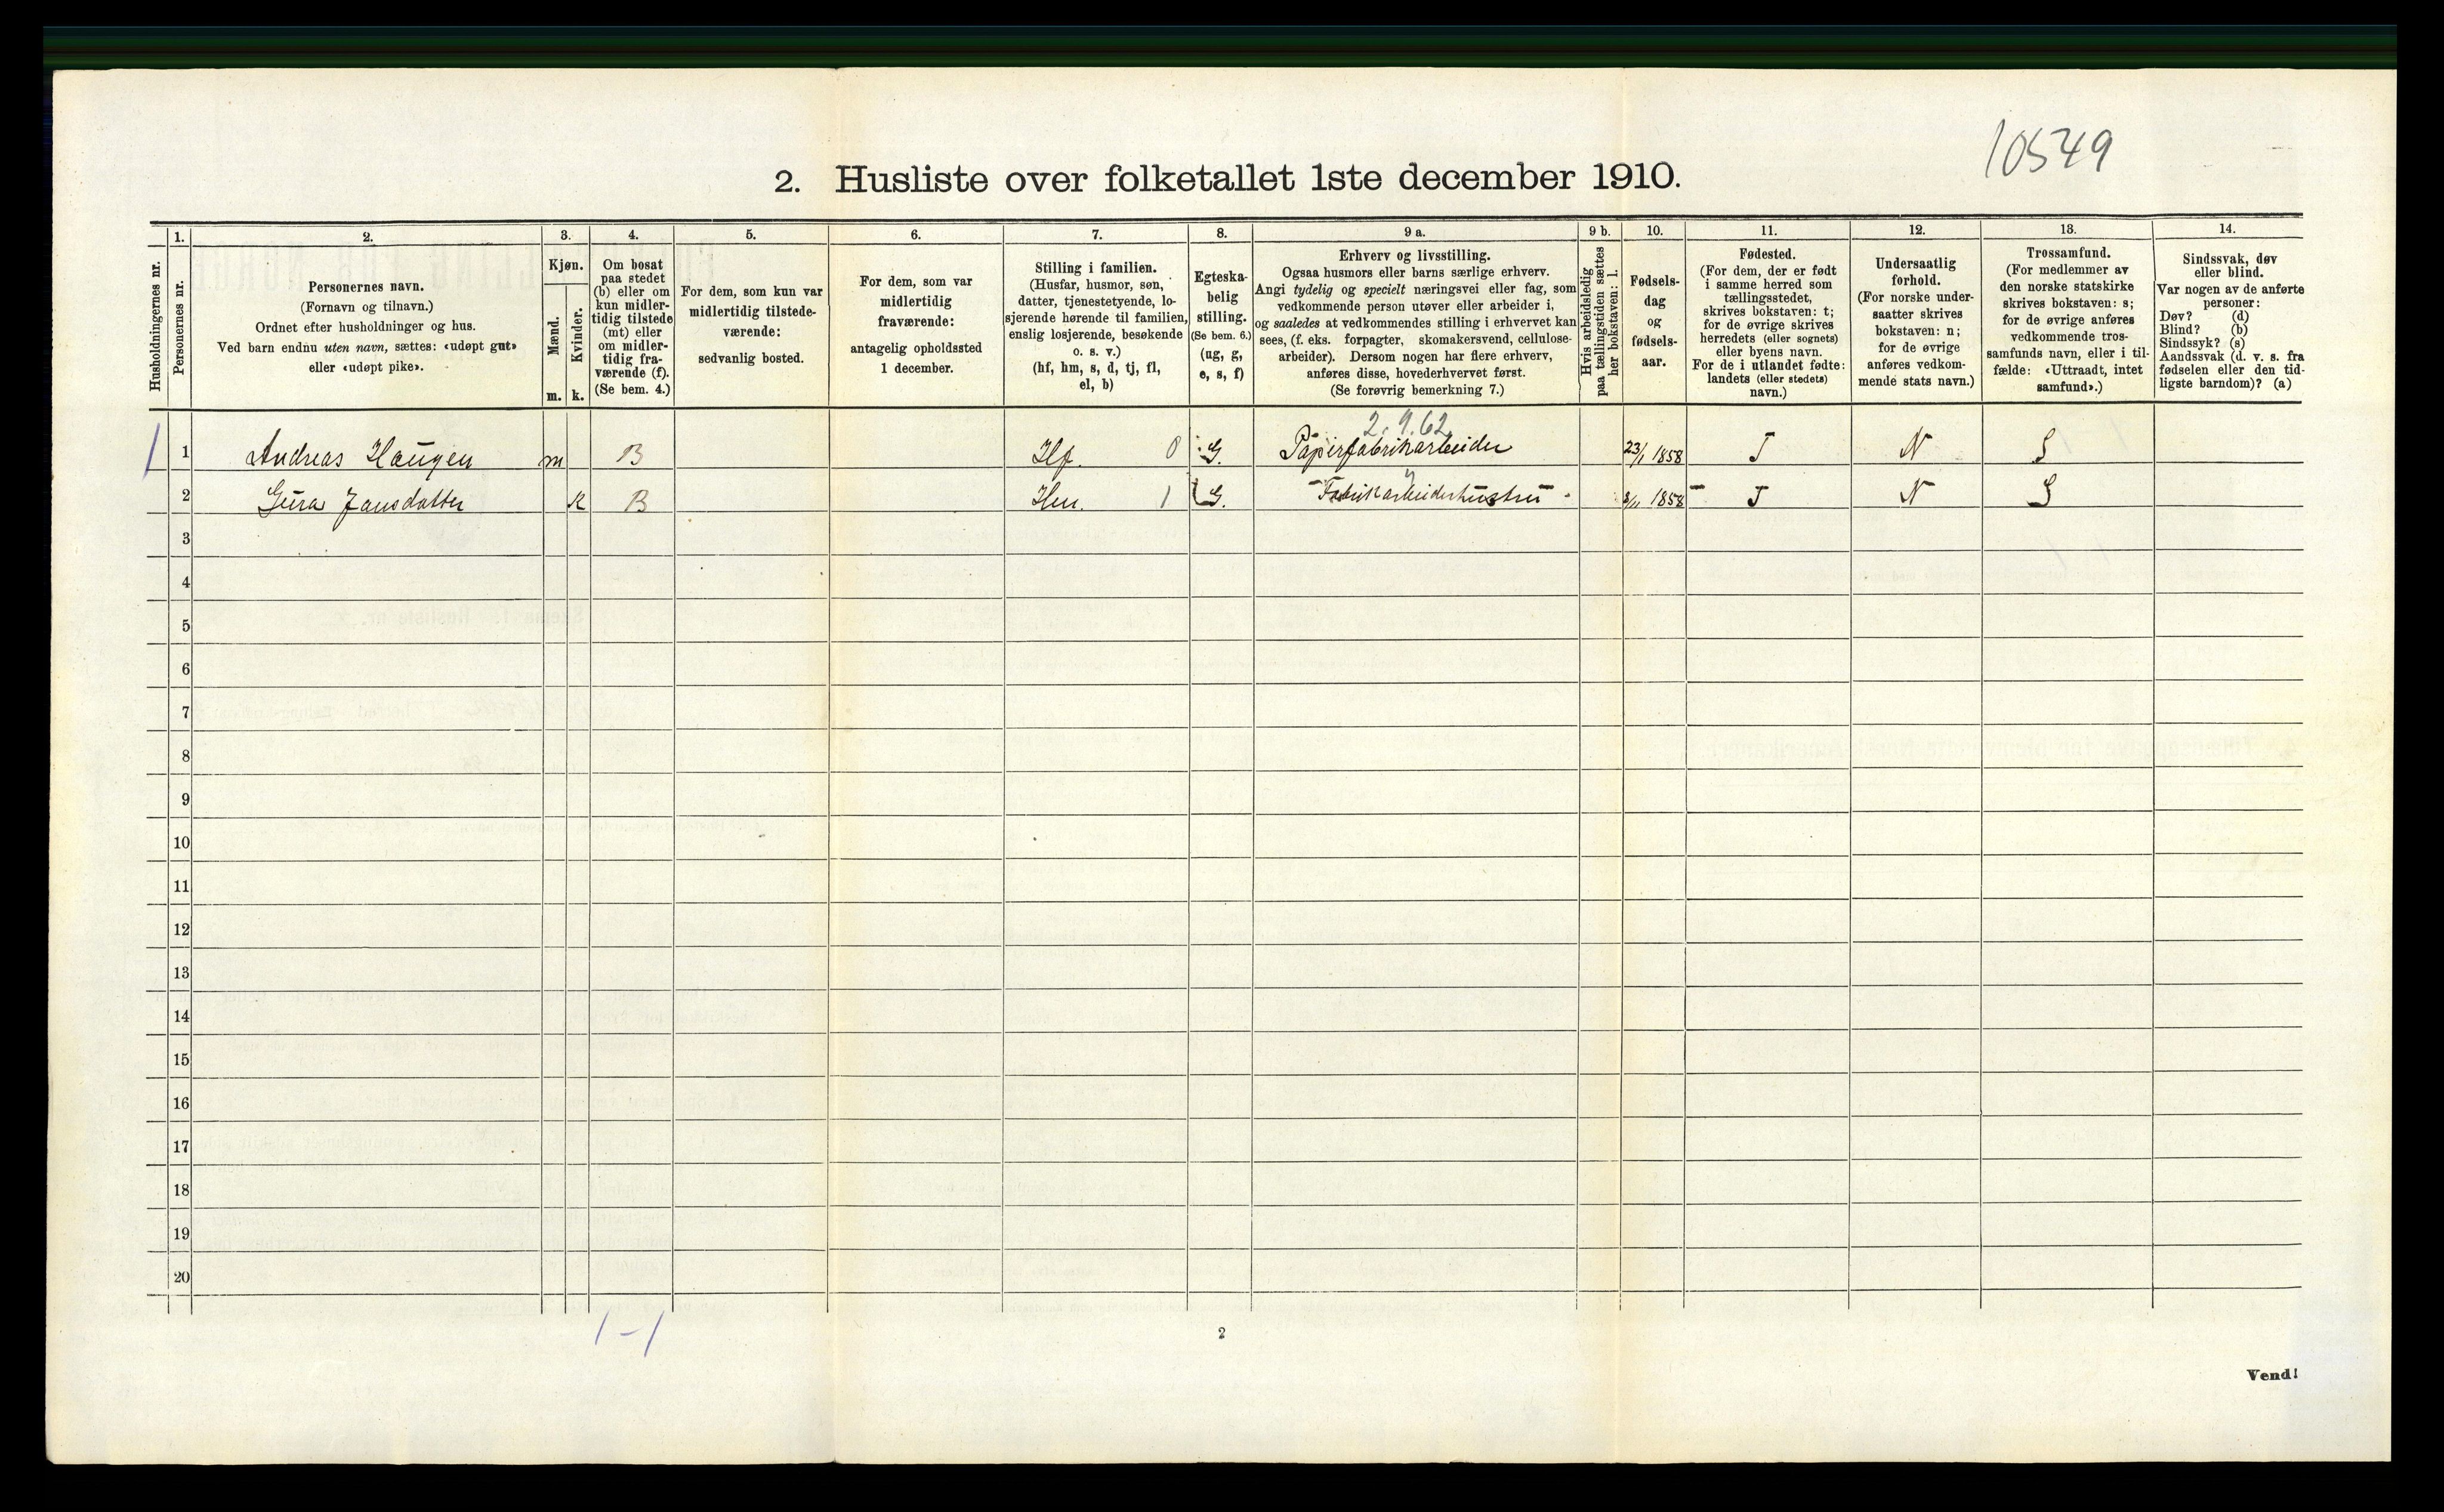 10549
2. Husliste over folketallet 1ste december 1910.
Husholdningernes nr.
1.
Personernes nr.
2.
Personernes navn.
(Fornavn og tilnavn.)
Ordnet efter husholdninger og hus.
Ved barn endnu uten navn, sættes: «udøpt gut»
eller «udøpt pike».
3.
Kjøn.
Mænd.
m.
Kvinder.
k.
4.
Om bosat
paa stedet
(b) eller om
kun midler-
tidig tilstede
(mt) eller
om midler-
tidig fra-
værende (f).
(Se bem. 4.)
5.
For dem, som kun var
midlertidig tilstede-
værende:
sedvanlig bosted.
6.
For dem, som var
midlertidig
fraværende:
antagelig opholdssted
1 december.
7.
Stilling i familien.
(Husfar, husmor, søn,
datter, tjenestetyende, lo-
sjerende hørende til familien,
enslig losjerende, besøkende
o. s. v.)
(hf, hm, s, d, tj, fl,
el, b)
8.
Egteska-
belig
stilling.
(Se bem. 6.)
(ug, g,
e, s, f)
9 a.
Erhverv og livsstilling.
Ogsaa husmors eller barns særlige erhverv.
Angi tydelig og specielt næringsvei eller fag, som
vedkommende person utøver eller arbeider i,
og saaledes at vedkommendes stilling i erhvervet kan
sees, (f. eks. forpagter, skomakersvend, cellulose-
arbeider). Dersom nogen har flere erhverv,
anføres disse, hovederhvervet først.
(Se forøvrig bemerkning 7.)
9 b.
Hvis arbeidsledig
paa tællingstiden sættes
her bokstaven: l.
10.
Fødsels-
dag
og
fødsels-
aar.
11.
Fødested.
(For dem, der er født
i samme herred som
tællingsstedet,
skrives bokstaven: t;
for de øvrige skrives
herredets (eller sognets)
eller byens navn.
For de i utlandet fødte:
landets (eller stedets)
navn.)
12.
Undersaatlig
forhold.
(For norske under-
saatter skrives
bokstaven: n;
for de øvrige
anføres vedkom-
mende stats navn.)
13.
Trossamfund.
(For medlemmer av
den norske statskirke
skrives bokstaven: s;
for de øvrige anføres
vedkommende tros-
samfunds navn, eller i til-
fælde: «Uttraadt, intet
samfund».)
14.
Sindssvak, døv
eller blind.
Var nogen av de anførte
personer:
Døv? (d)
Blind? (b)
Sindssyk? (s)
Aandssvak (d. v. s. fra
fødselen eller den tid-
ligste barndom)? (a)
2.9.62
1 1 Andreas Haugen m B Hf. 0 G. Papirfabrikarbeider 23/1 1858 T N S
2 Gura Jansdatter K B Hm. 1 G. Fabrikarbeiderhustru 1858 T N S
3
4
5
6
7
8
9
10
11
12
13
14
15
16
17
18
19
20
1-1
2
Vend!